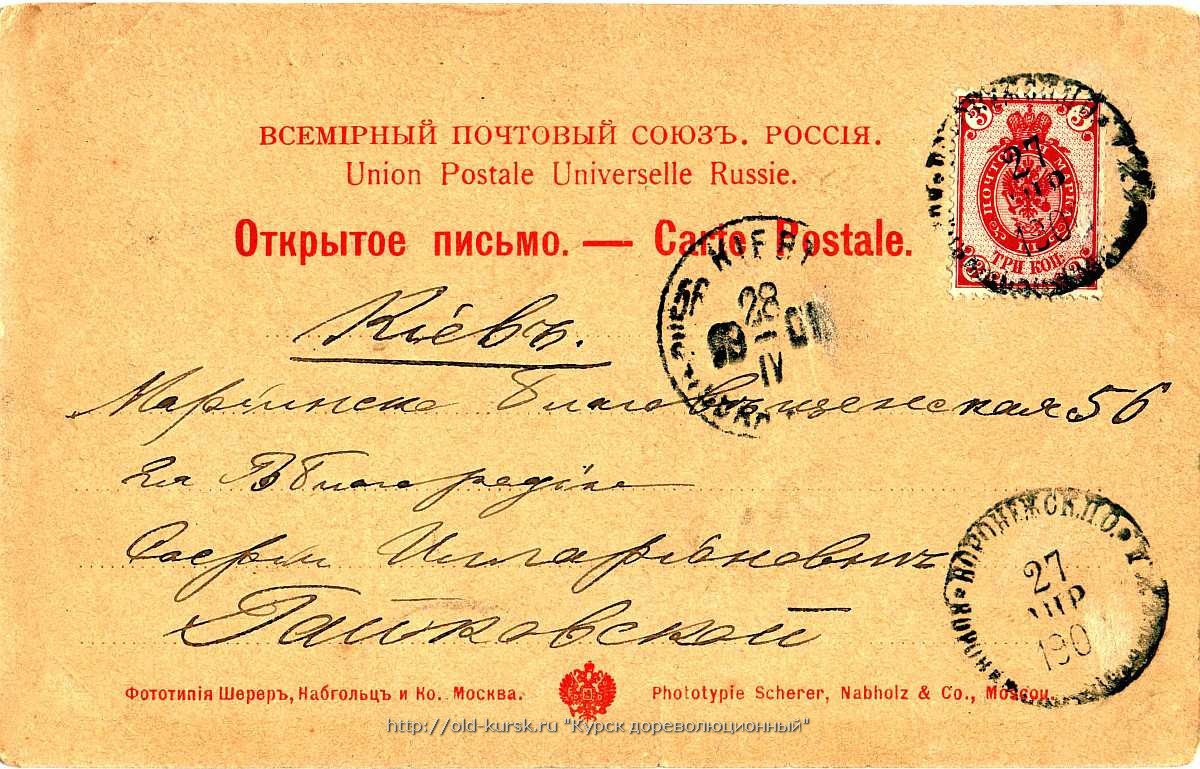 ВСЕМІРНЫЙ ПОЧТОВЫЙ СОЮЗЪ. РОССІЯ.
Union Postale Universelle Russie.
Открытое письмо. — Carte Postale.
3 3
ПОЧТОВ МАРКА
ТРИ КОП.
27
КІЕВЪ
28
IV
Кіевъ.
Маріинско Благовѣщенская 56
Ея В Благородію
Иларіоновнѣ
Гайковской
ВОРОНЕЖСК.П.О.
27
АПР
190
Фототипія Шереръ, Набгольцъ и Ко. Москва.
Phototypie Scherer, Nabholz & Co., Moscou.
http://old-kursk.ru "Курск дореволюционный"